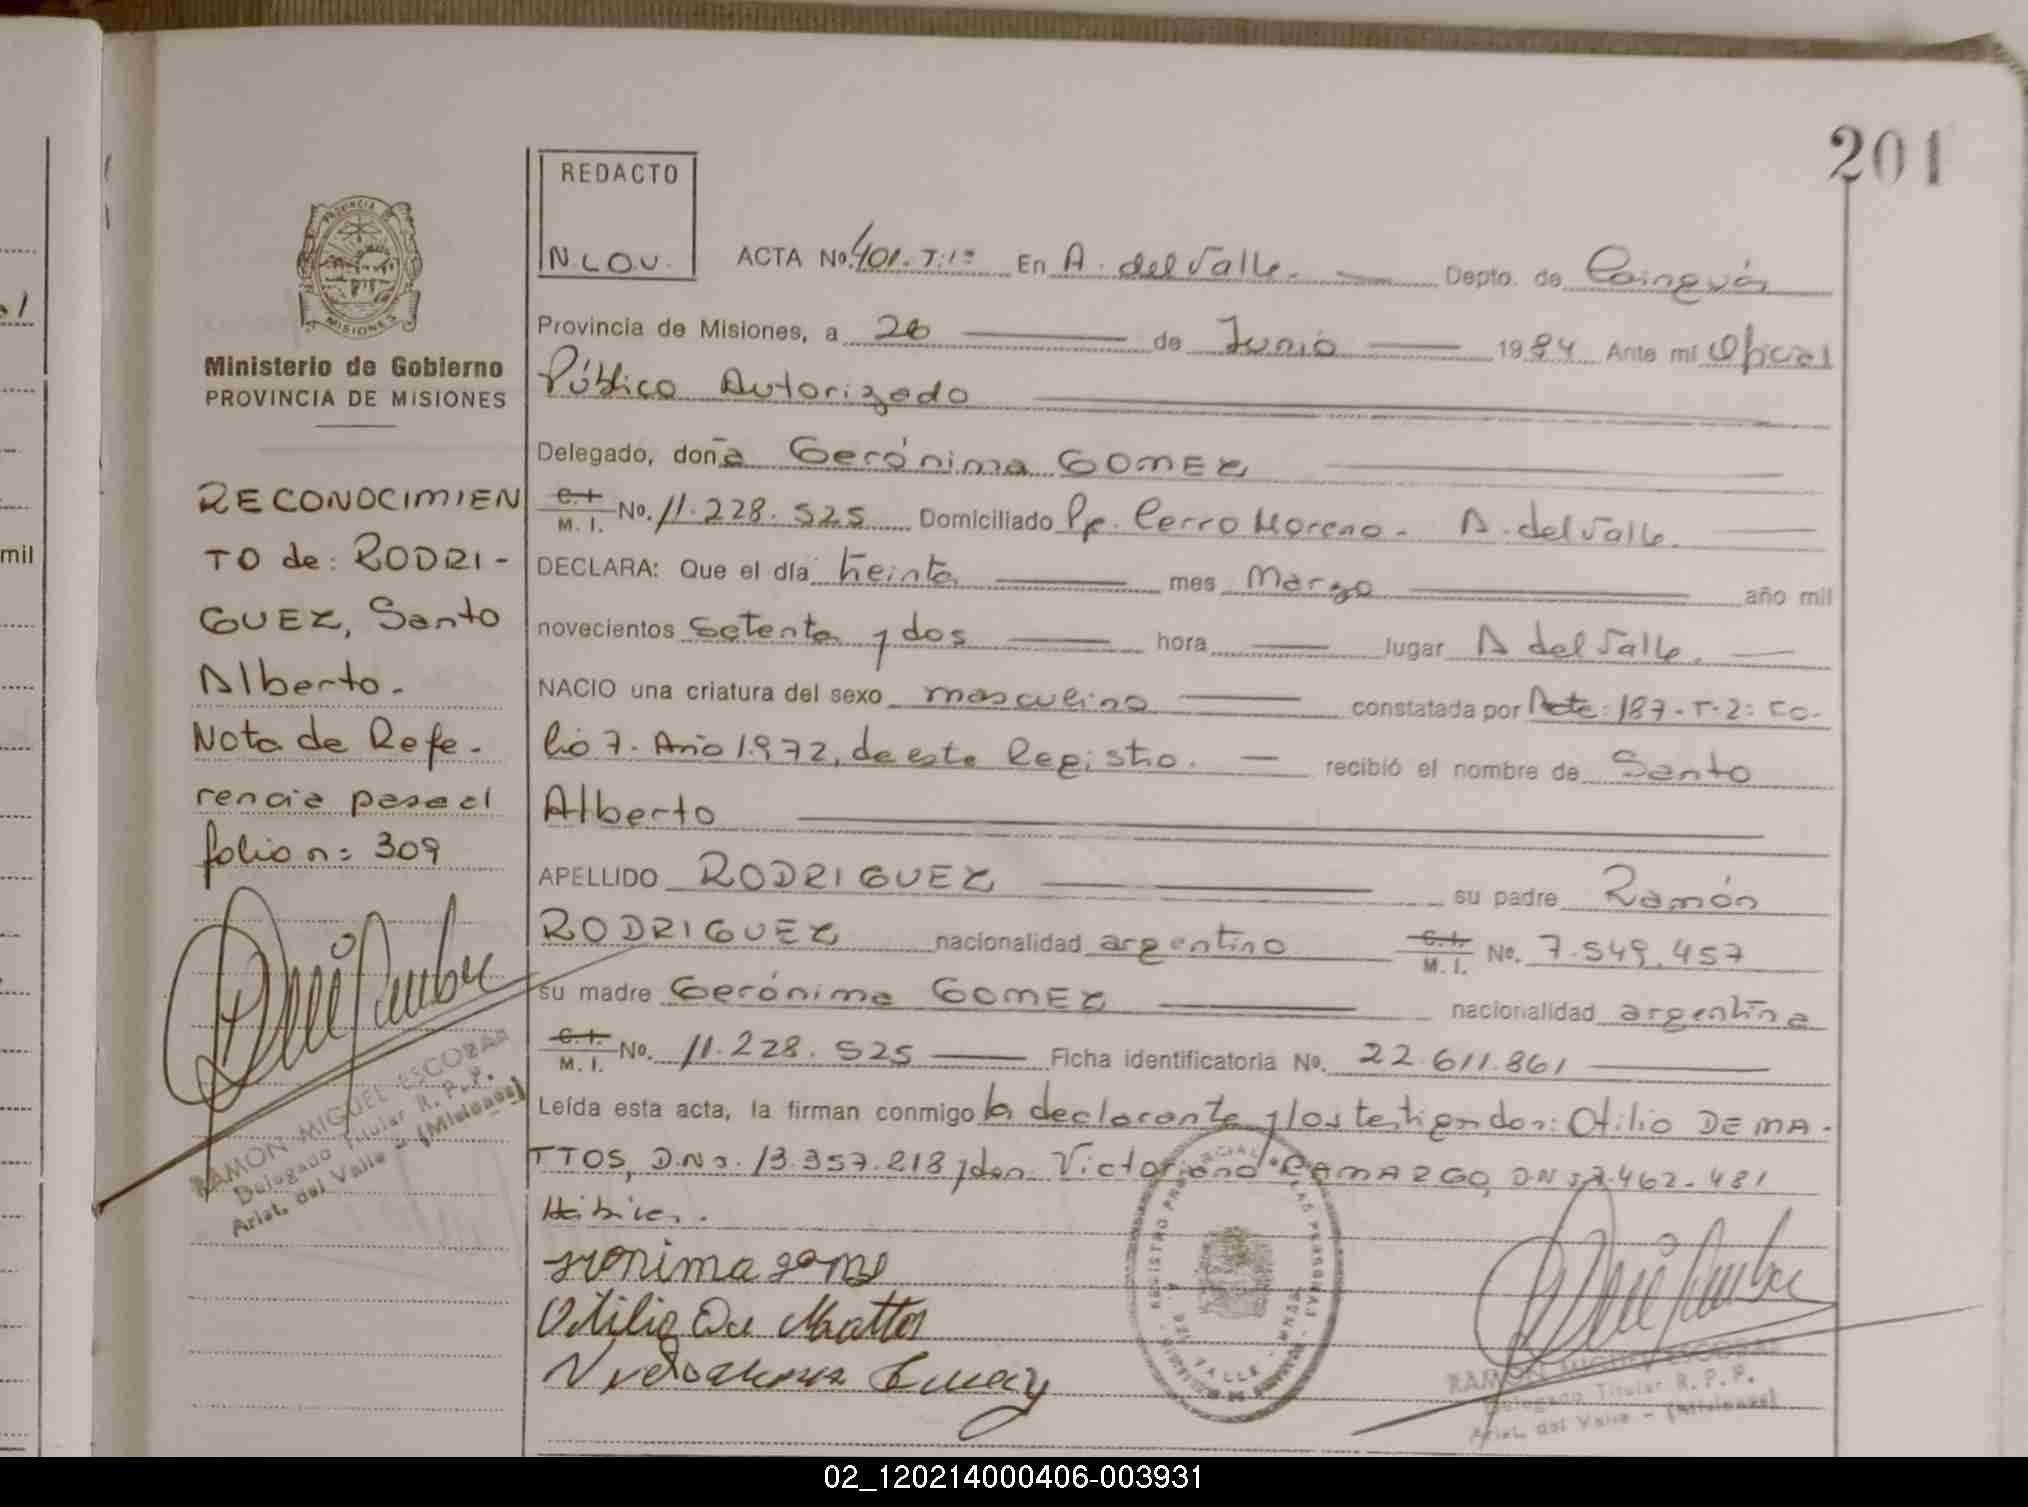 201
REDACTO
N.L.O.V.
ACTA No. 401. T: 1º En A. del Valle. Depto. de Cainguás
Provincia de Misiones, a 26 de Junio 1984 Ante mí Oficial
Público Autorizado
Delegado, doña Gerónima GOMEZ
C.I. M. I. No. 11.228.525 Domiciliado Pje. Cerro Moreno - A. del Valle.
DECLARA: Que el día treinta mes Marzo año mil
novecientos Setenta y dos hora lugar A del Valle.
NACIO una criatura del sexo masculino constatada por Acta: 187-T-2: Fo-
lio 7. Año 1.972, de este Registro. recibió el nombre de Santo
Alberto
APELLIDO RODRIGUEZ su padre Ramón
RODRIGUEZ nacionalidad argentino C.I. M. I. No. 7.549.457
su madre Gerónima GOMEZ nacionalidad argentina
C.I. M. I. No. 11.228.525 Ficha identificatoria No. 22.611.861
Leída esta acta, la firman conmigo la declarante y los testigos don: Otilio DE MA-
TTOS, D.N.I. 13.357.218 y don Victoriano CAMARGO, D.N.I. 7.462.481
Hábiles.
Otilio De Mattos
REGISTRO PROVINCIAL DE LAS PERSONAS
A. DEL VALLE
RAMON MIGUEL ESCOBAR
Delegado Titular R. P. P.
Arist. del Valle - (Misiones)
PROVINCIA DE
MISIONES
Ministerio de Gobierno
PROVINCIA DE MISIONES
RECONOCIMIEN
TO de: RODRI-
GUEZ, Santo
Alberto.
Nota de Refe-
rencia pasa al
folio n: 309
RAMON MIGUEL ESCOBAR
Delegado Titular R. P. P.
Arist. del Valle - (Misiones)
mil
02_120214000406-003931